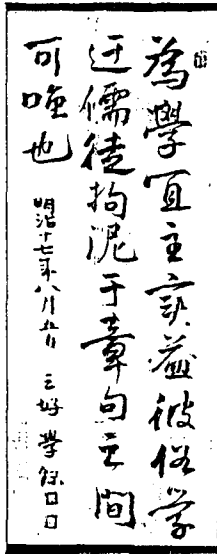 為學宜主實益彼俗学
迂儒徒拘泥于章句之間
可唖也
明治十七年八月 三好學